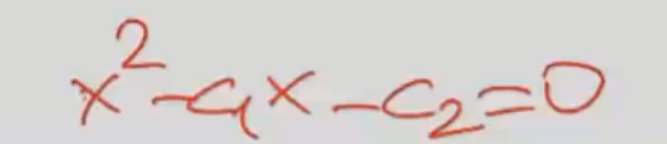 x² - c₁x - c₂ = 0